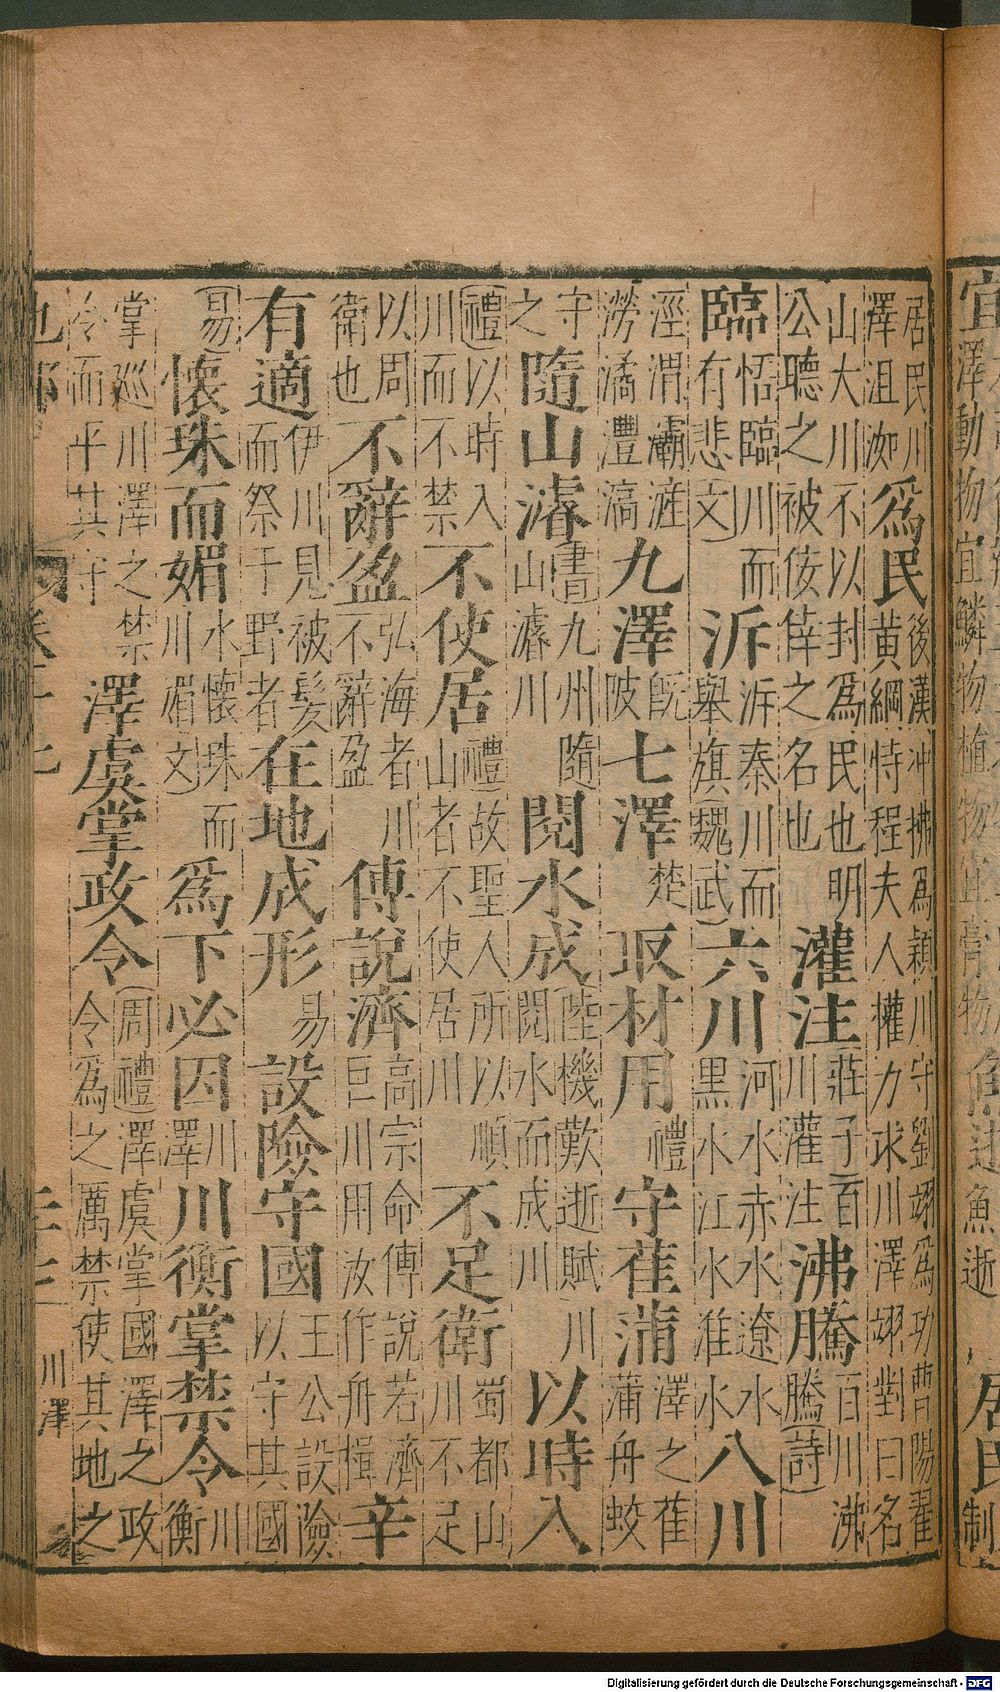 宜澤動物宜鱗物植物宜膏物魚逝魚逝居民制
居民川澤沮洳爲民後漢沖拂爲潁川守劉翊爲功曹陽翟黄綱恃程夫人權力求川澤翊對曰名
山大川不以封爲民也明公聽之被佞倖之名也灌注莊子百川灌注沸騰百川沸騰詩
臨悟臨川而有悲文泝泝秦川而舉旗魏武六川河水赤水遼水黒水江水淮水八川
涇渭灞滻澇潏灃滈九澤既陂七澤楚取材用禮守萑蒲澤之萑蒲舟蛟
守之隨山濬書九州隨山濬川閱水成陸機歎逝賦川閱水而成川以時入
禮以時入川而不禁不使居禮故聖人所以順山者不使居川不足衛蜀都山川不足
以周衛也不辭盈弘海者川不辭盈傅說濟高宗命傅說若濟巨川用汝作舟楫辛
有適伊川見被髮而祭于野者在地成形易設險守國王公設險以守其國
易懷珠而媚水懷珠而川媚文爲下必因川澤川衡掌禁令川衡
掌巡川澤之禁令而平其守澤虞掌政令周禮澤虞掌國澤之政令爲之厲禁使其地之
川澤
Digitalisierung gefördert durch die Deutsche Forschungsgemeinschaft - DFG